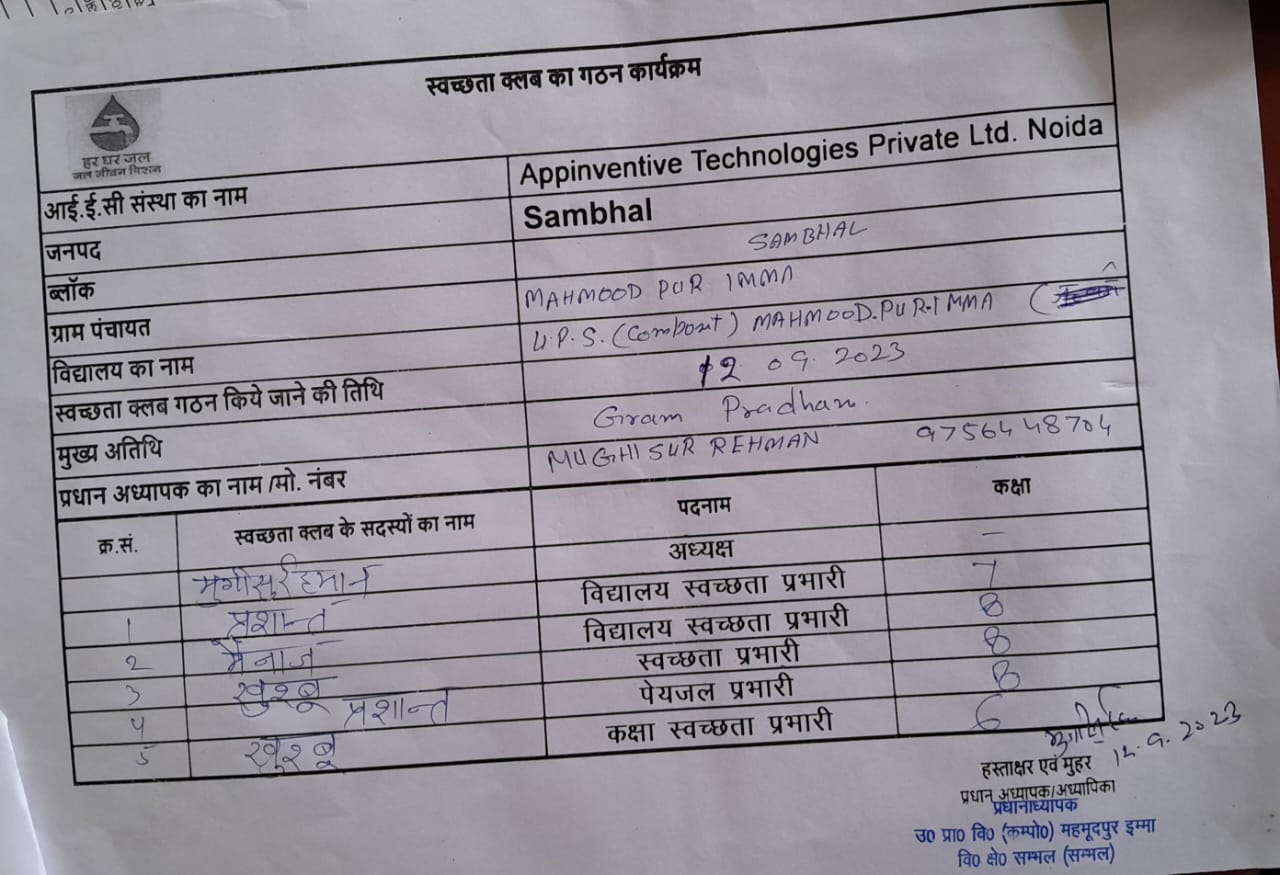 स्वच्छता क्लब का गठन कार्यक्रम
हर घर जल
जल जीवन मिशन
आई.ई.सी संस्था का नाम Appinventive Technologies Private Ltd. Noida
जनपद Sambhal
ब्लॉक SAMBHAL
ग्राम पंचायत MAHMOOD PUR IMMA
विद्यालय का नाम U.P.S. (Composit) MAHMOOD.PUR-IMMA (
स्वच्छता क्लब गठन किये जाने की तिथि 12 09. 2023
मुख्य अतिथि Gram Pradhan.
प्रधान अध्यापक का नाम /मो. नंबर MUGHISUR REHMAN 9756448704
क्र.सं. स्वच्छता क्लब के सदस्यों का नाम पदनाम कक्षा
मुगीसुर्रहमान अध्यक्ष –
1 प्रशान्त विद्यालय स्वच्छता प्रभारी 7
2 मैनाज विद्यालय स्वच्छता प्रभारी 8
3 खुश्बू स्वच्छता प्रभारी 8
4 प्रशान्त पेयजल प्रभारी 8
5 खुश्बू कक्षा स्वच्छता प्रभारी 6
12.9.2023
हस्ताक्षर एवं मुहर
प्रधान अध्यापक/अध्यापिका
प्रधानाध्यापक
उ0 प्रा0 वि0 (कम्पो0) महमूदपुर इम्मा
वि0 क्षे0 सम्भल (सम्भल)